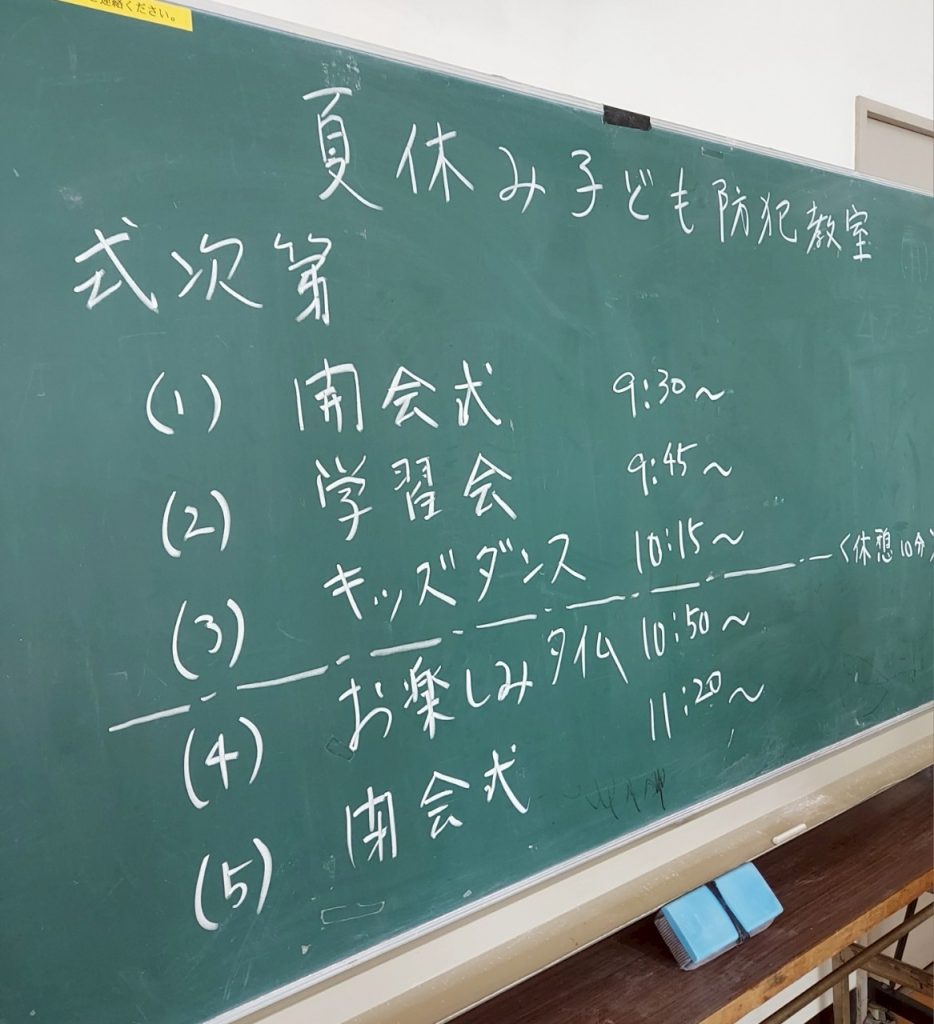 ご連絡ください。
夏休み子ども防犯教室
式次第
(1) 開会式 9:30～
(2) 学習会 9:45～
(3) キッズダンス 10:15～
〈休憩10分〉
(4) お楽しみタイム 10:50～
(5) 閉会式 11:20～